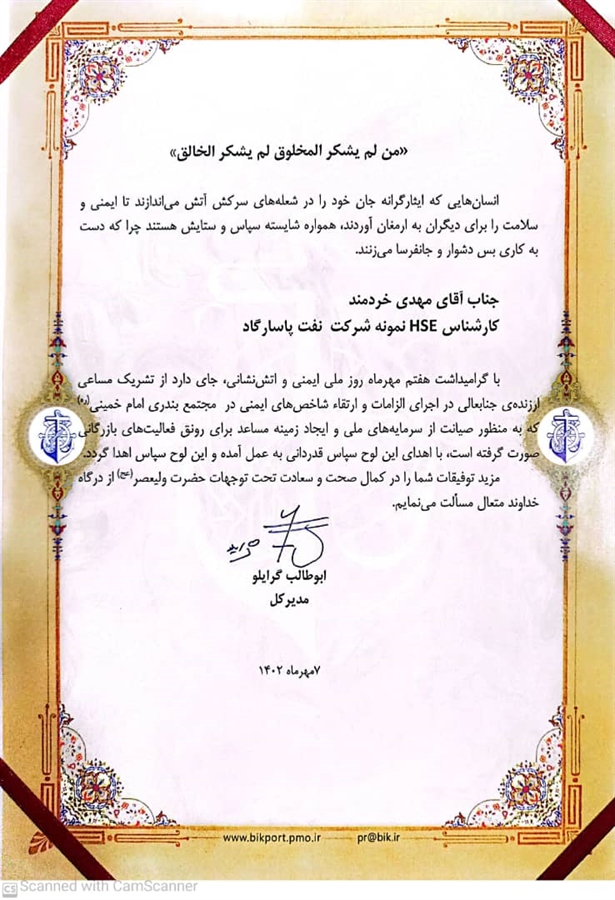 «من لم یشکر المخلوق لم یشکر الخالق»
انسان‌هایی که ایثارگرانه جان خود را در شعله‌های سرکش آتش می‌اندازند تا ایمنی و
سلامت را برای دیگران به ارمغان آوردند، همواره شایسته سپاس و ستایش هستند چرا که دست
به کاری بس دشوار و جانفرسا می‌زنند.
جناب آقای مهدی خردمند
کارشناس HSE نمونه شرکت نفت پاسارگاد
با گرامیداشت هفتم مهرماه روز ملی ایمنی و اتش‌نشانی، جای دارد از تشریک مساعی
ارزنده‌ی جنابعالی در اجرای الزامات و ارتقاء شاخص‌های ایمنی در مجتمع بندری امام خمینی(ره)
که به منظور صیانت از سرمایه‌های ملی و ایجاد زمینه مساعد برای رونق فعالیت‌های بازرگانی
صورت گرفته است، با اهدای این لوح سپاس قدردانی به عمل آمده و این لوح سپاس اهدا گردد.
مزید توفیقات شما را در کمال صحت و سعادت تحت توجهات حضرت ولیعصر(عج) از درگاه
خداوند متعال مسألت می‌نمایم.
ابوطالب گرایلو
مدیرکل
۷مهرماه ۱۴۰۲
www.bikport.pmo.ir pr@bik.ir
CS Scanned with CamScanner